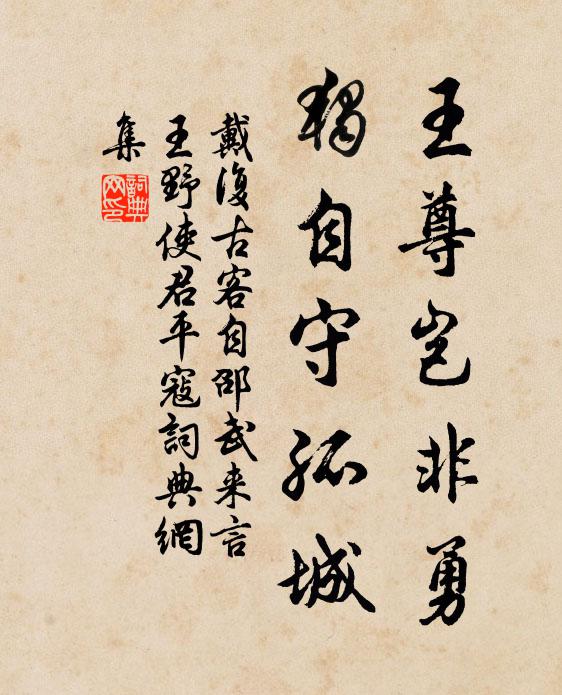 王尊岂非勇
獨自守孤城
戴復古客自邵武来言
王野使君平寇詞典網
集
詞典
网印